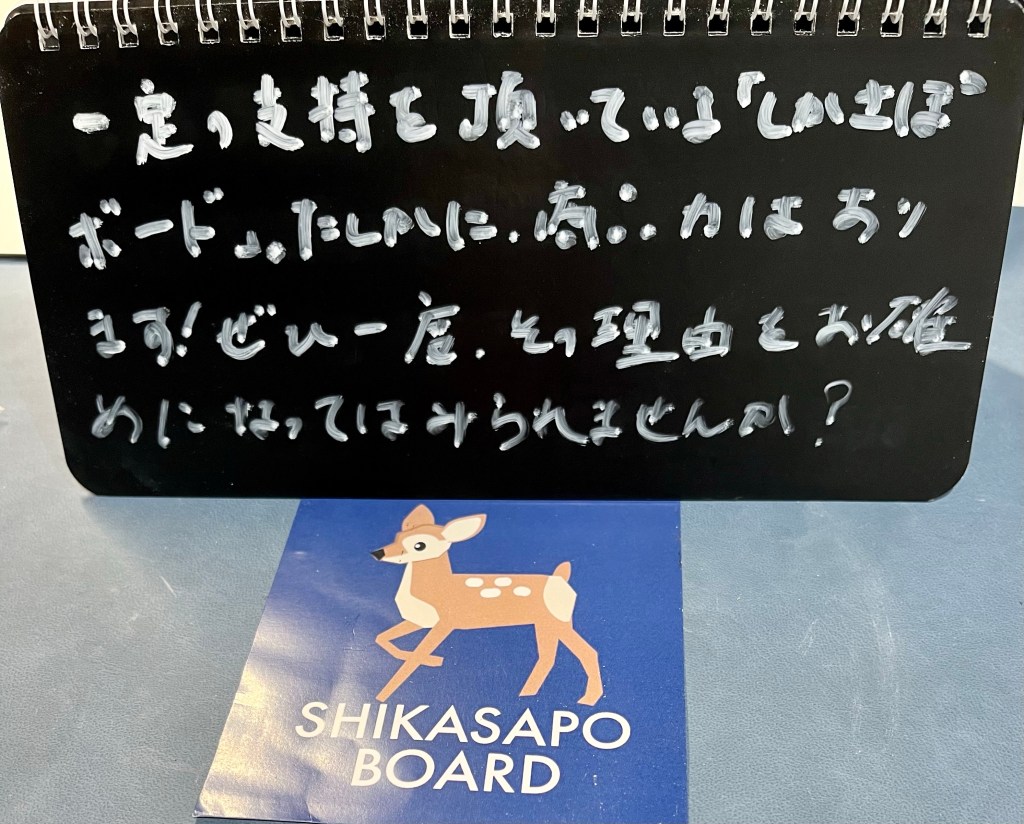 一定の支持を頂いている「しかさぽ
ボード」。たしかに、高い力はあり
ます!ぜひ一度、その理由をお確
めになってはみられませんか?
SHIKASAPO
BOARD